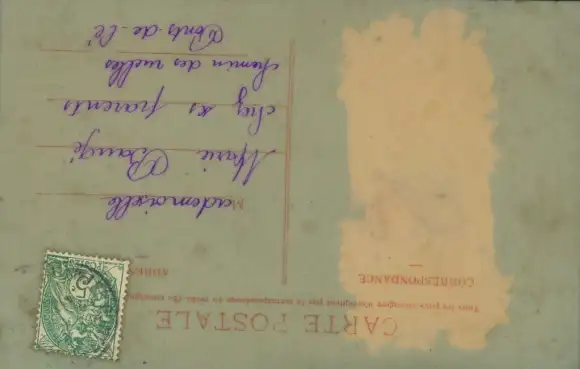 CARTE POSTALE
Tous les pays étrangers n'acceptent pas la correspondance au recto. (Se renseigner
CORRESPONDANCE
ADRES
Mademoiselle
Marie Baugé
chez ses parents
chemin des ruelles
Ponts-de-Cé